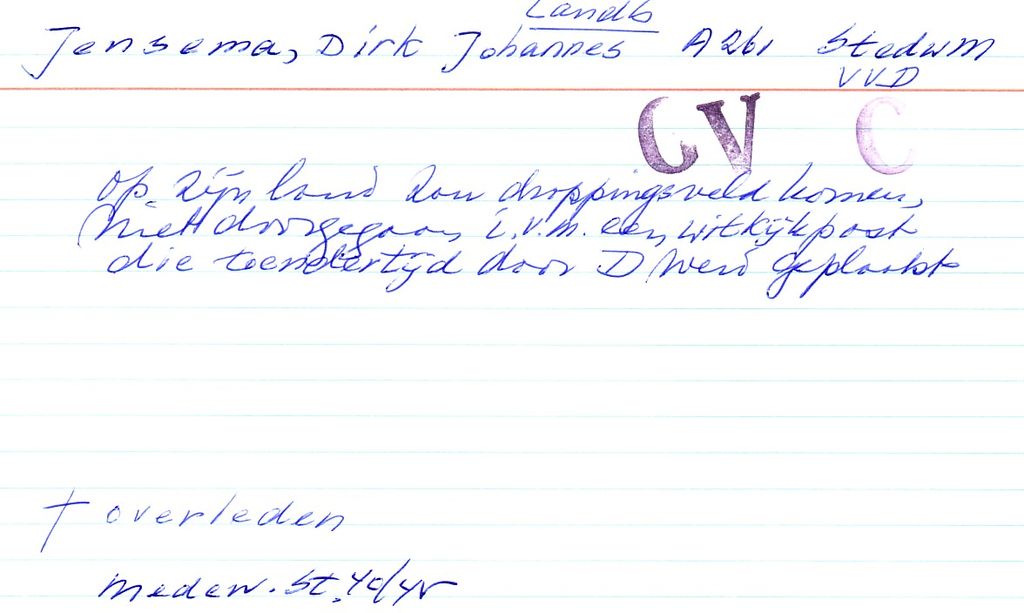 Landb
Jensema, Dirk Johannes A 261 Stedum
VVD
CV C
Op zijn land zou droppingsveld komen,
niet doorgegaan i.v.m. een uitkijkpost
die toendertijd door D werd geplaatst
† overleden
medew. St. 40/45